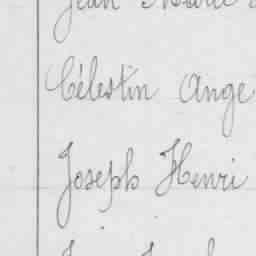 Jean Marie
Célestin Ange
Joseph Henri